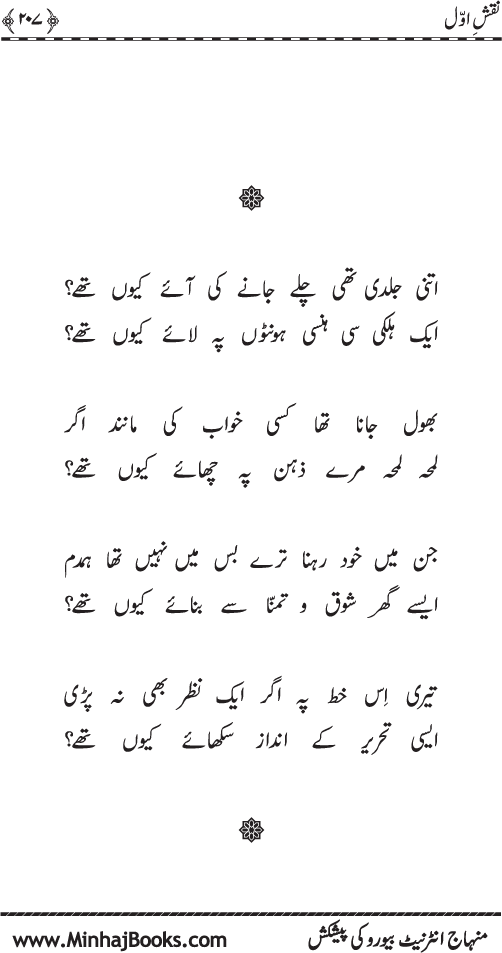 نقشِ اوّل
﴿ ۲۰۷ ﴾
اتنی جلدی تھی چلے جانے کی آئے کیوں تھے؟
ایک ہلکی سی ہنسی ہونٹوں پہ لائے کیوں تھے؟
بھول جانا تھا کسی خواب کی مانند اگر
لمحہ لمحہ مرے ذہن پہ چھائے کیوں تھے؟
جن میں خود رہنا ترے بس میں نہیں تھا ہمدم
ایسے گھر شوق و تمنّا سے بنائے کیوں تھے؟
تیری اِس خط پہ اگر ایک نظر بھی نہ پڑی
ایسی تحریر کے انداز سکھائے کیوں تھے؟
منہاج انٹرنیٹ بیورو کی پیشکش
www.MinhajBooks.com